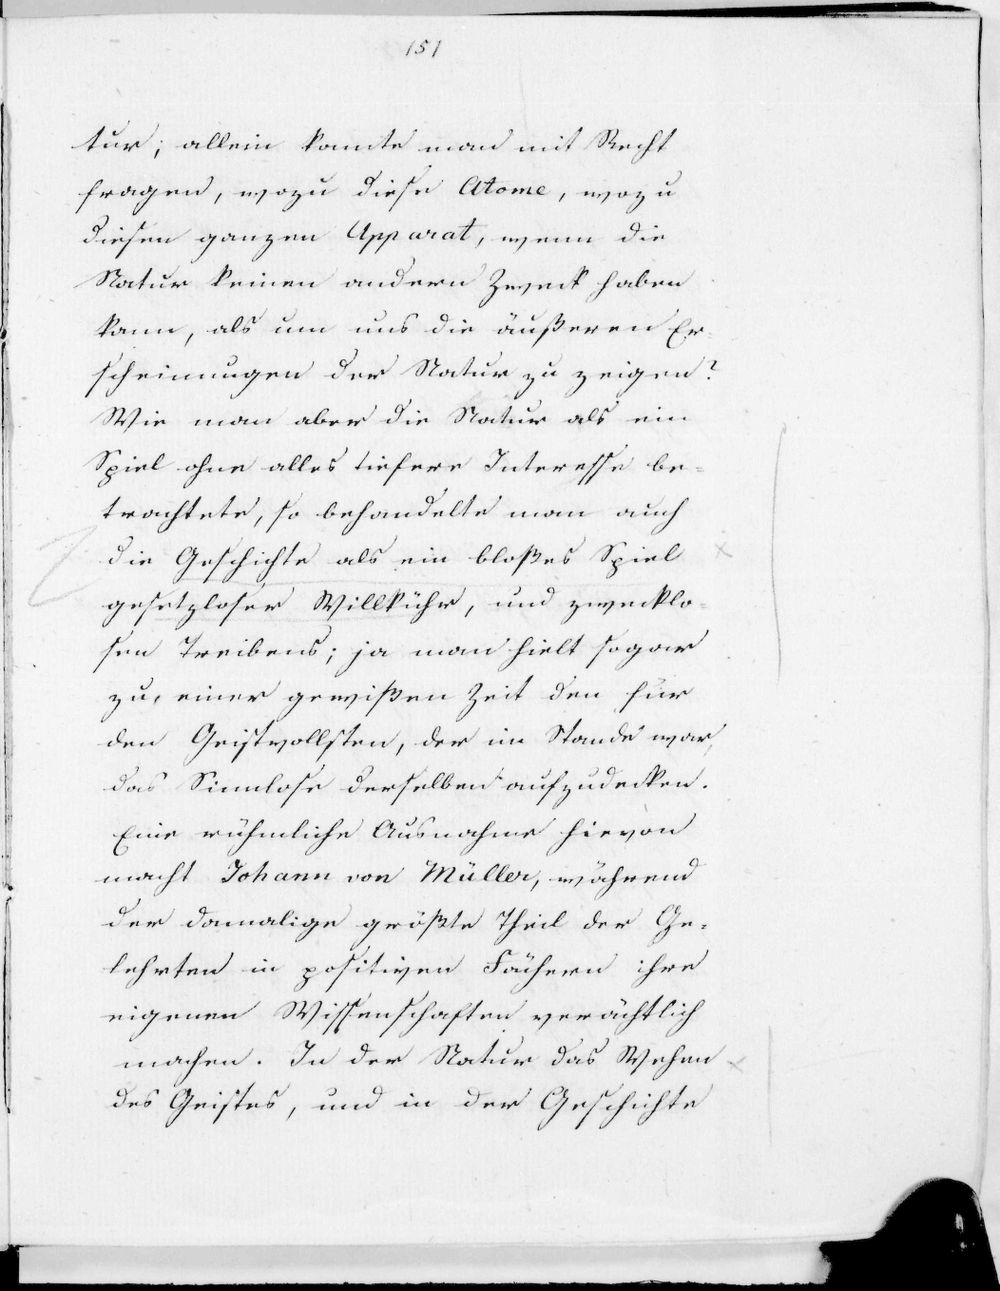 151
tur; allein konnte man mit Recht
fragen, wozu diese Atome, wozu
diesen ganzen Apparat, wenn die
Natur keinen andern Zweck haben
kann, als um uns die äußeren Er-
scheinungen der Natur zu zeigen?
Wie man aber die Natur als ein
Spiel ohne alles tiefere Interesse be=
trachtete, so behandelte man auch
die Geschichte als ein bloßes Spiel
gesetzloser Willkühr, und zwecklo-
sen Treibens; ja man hielt sogar
zu einer gewißen Zeit den für
den Geistvollsten, der im Stande war,
das Sinnlose derselben aufzudecken.
Eine rühmliche Ausnahme hievon
macht Johann von Müller, während
der damalige größte Theil der Ge=
lehrten in positiven Fächern ihre
eigenen Wissenschaften verächtlich
machen. In der Natur das Wehen
des Geistes, und in der Geschichte